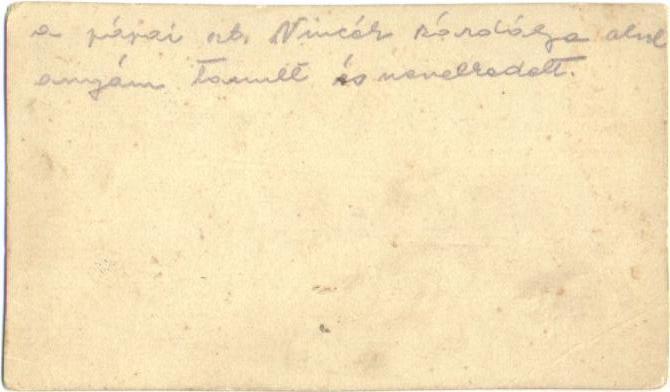 a pápai szt. Vincés zárdája ahol
anyám tanult és nevelkedett.